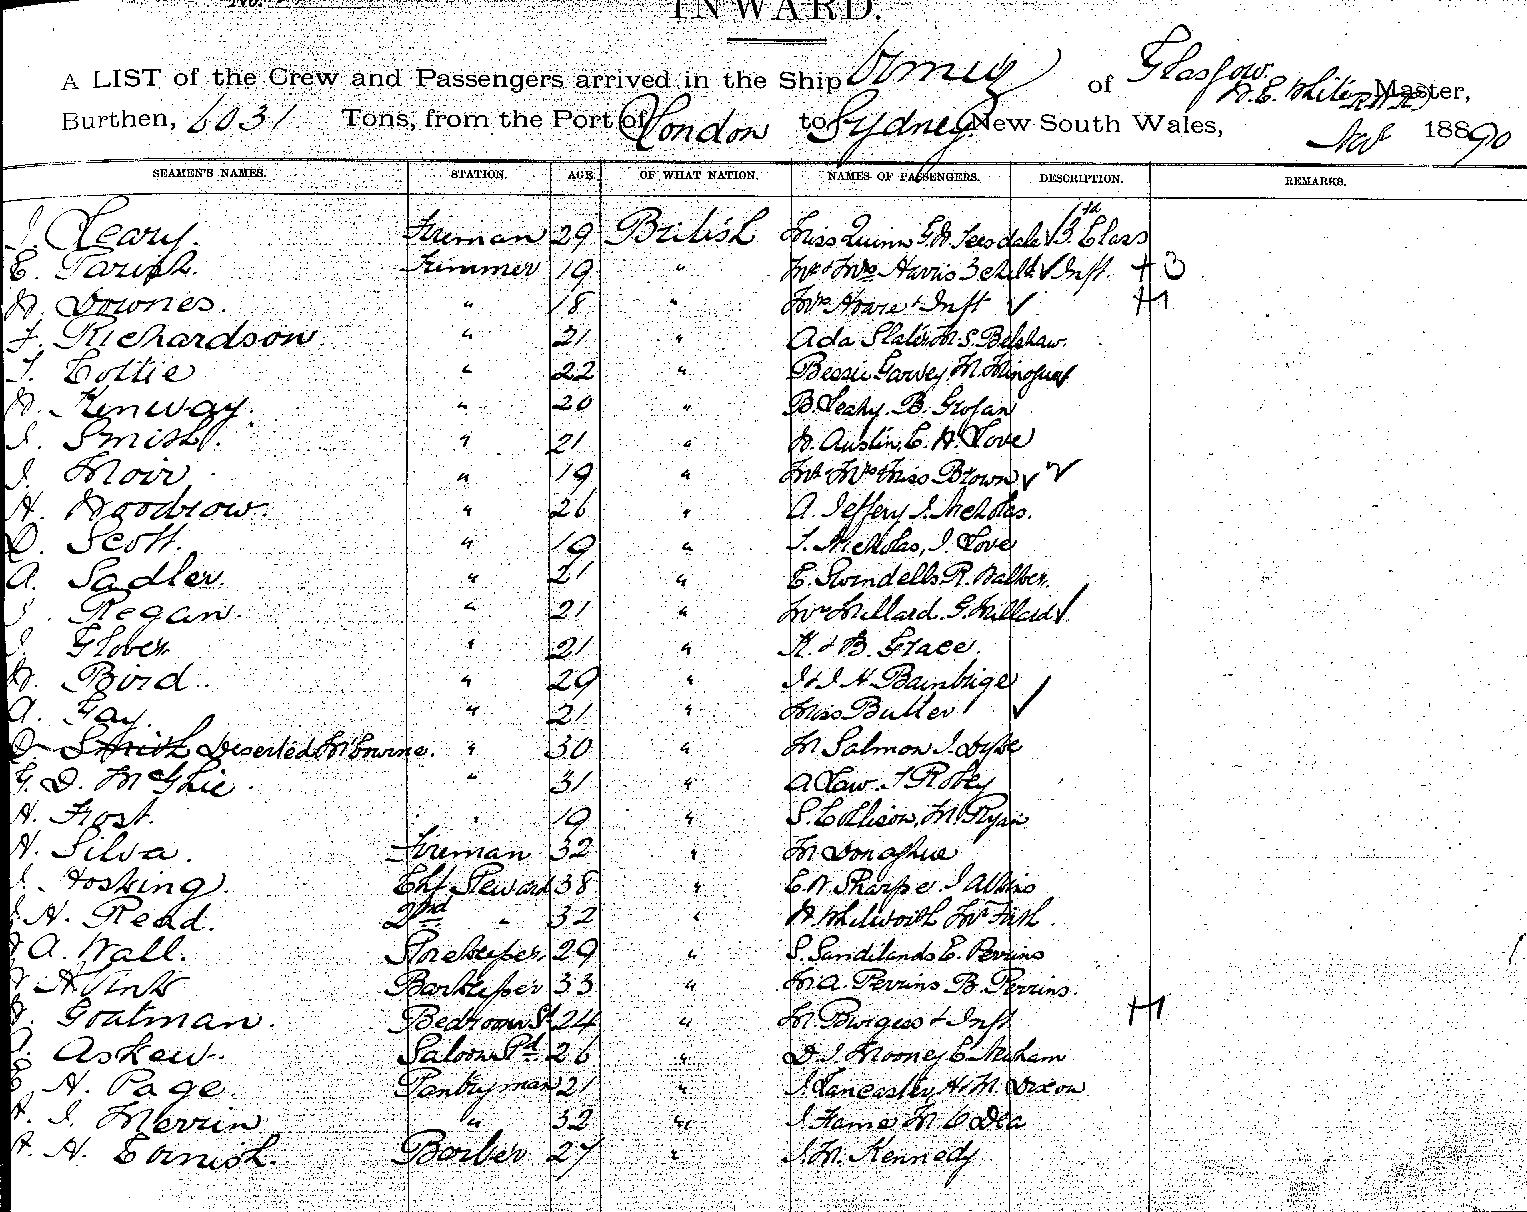 No.
INWARD.
A LIST of the Crew and Passengers arrived in the Ship of Glasgow. Master,
Burthen, 6031 Tons, from the Port of London to Sydney New South Wales, 1890
SEAMEN'S NAMES. STATION. AGE. OF WHAT NATION. NAMES OF PASSENGERS. DESCRIPTION. REMARKS.
J. Leary. Fireman 29 British Miss Quinn G. W. Teesdale 3rd Class
E. Trimmer 19 " Mr & Mrs Harris 3 child Inft. + 3
W. Downes. " 18 " Mrs Howie & Inft + 1
F. Richardson " 21 " Ada Slater M. S. Belshaw.
T. Cottie " 22 " Bessie Garvey. M.
W. Kenway. " 20 " B. Leahy. B. Grogan
J. Smith. " 21 " W. Austin, E. A. Love
J. Moir " 19 " Mr Mrs Miss Brown
H. Woodrow. " 26 " A. Jeffery J. Nicholas.
D. Scott. " 19 " T. Nicholas, J. Love
A. Sadler. " 21 " E. Swindells R. Walker.
J. Regan. " 21 " Mrs Millard. G. Millard
J. Glover. " 21 " K. & B. Grace.
W. Bird. " 29 " J & J H. Bainbrige
A. Gay. " 21 " Miss Butler
D Smith Deserted Melbourne. " 30 " M Salmon J.
G. D. McGhie. " 31 " A Law. T Robey
H. Frost. " 19 " S. Ellison, M. Ryan
H. Silva. Fireman 32 " M Donaghue
J. Hosking. Chf Steward 38 " E. W. Sharpe J Atkins
J. H. Read. 2nd " 32 " W Whitworth Mrs Firth.
A. Wall. Storekeeper, 29 " S. Sandilands E. Perrins
Barkeeper 33 " M. A. Perrins B. Perrins.
W. Goatman. Bedroom St 24 " M Burgess & Inft + 1
Askew. Saloon Std 26 " D. J. Mooney E.
E. H. Page. Pantryman 21 " J. Lancasley, H & M. Dixon
J. Merrin " 32 " M O'Dea
H. Cornish. Barber 27 " J. M. Kennedy